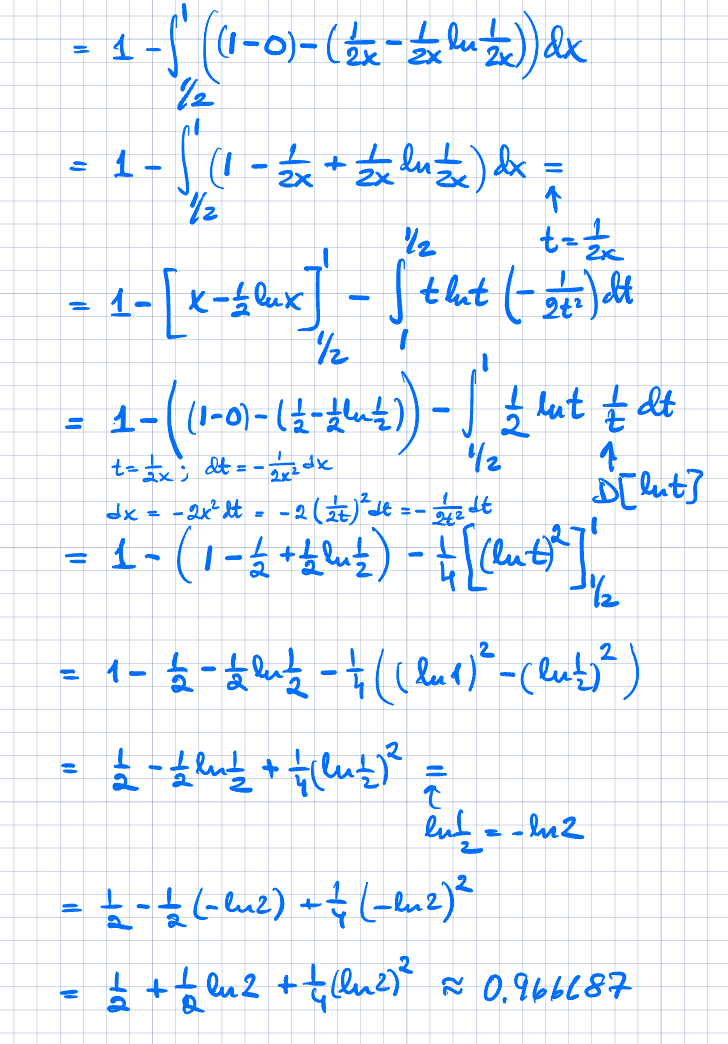 = 1 - ∫_{1/2}^{1} ((1-0) - (1/2x - 1/2x ln 1/2x)) dx
= 1 - ∫_{1/2}^{1} (1 - 1/2x + 1/2x ln 1/2x) dx =
↑
t = 1/2x
= 1 - [x - 1/2 ln x]_{1/2}^{1} - ∫_{1}^{1/2} t ln t (- 1/2t²) dt
= 1 - ((1-0) - (1/2 - 1/2 ln 1/2)) - ∫_{1/2}^{1} 1/2 ln t 1/t dt
t = 1/2x ; dt = - 1/2x² dx
↑
D[ln t]
dx = -2x² dt = -2 (1/2t)² dt = - 1/2t² dt
= 1 - (1 - 1/2 + 1/2 ln 1/2) - 1/4 [(ln t)²]_{1/2}^{1}
= 1 - 1/2 - 1/2 ln 1/2 - 1/4 ((ln 1)² - (ln 1/2)²)
= 1/2 - 1/2 ln 1/2 + 1/4 (ln 1/2)² =
↑
ln 1/2 = - ln 2
= 1/2 - 1/2 (- ln 2) + 1/4 (- ln 2)²
= 1/2 + 1/2 ln 2 + 1/4 (ln 2)² ≈ 0.966687